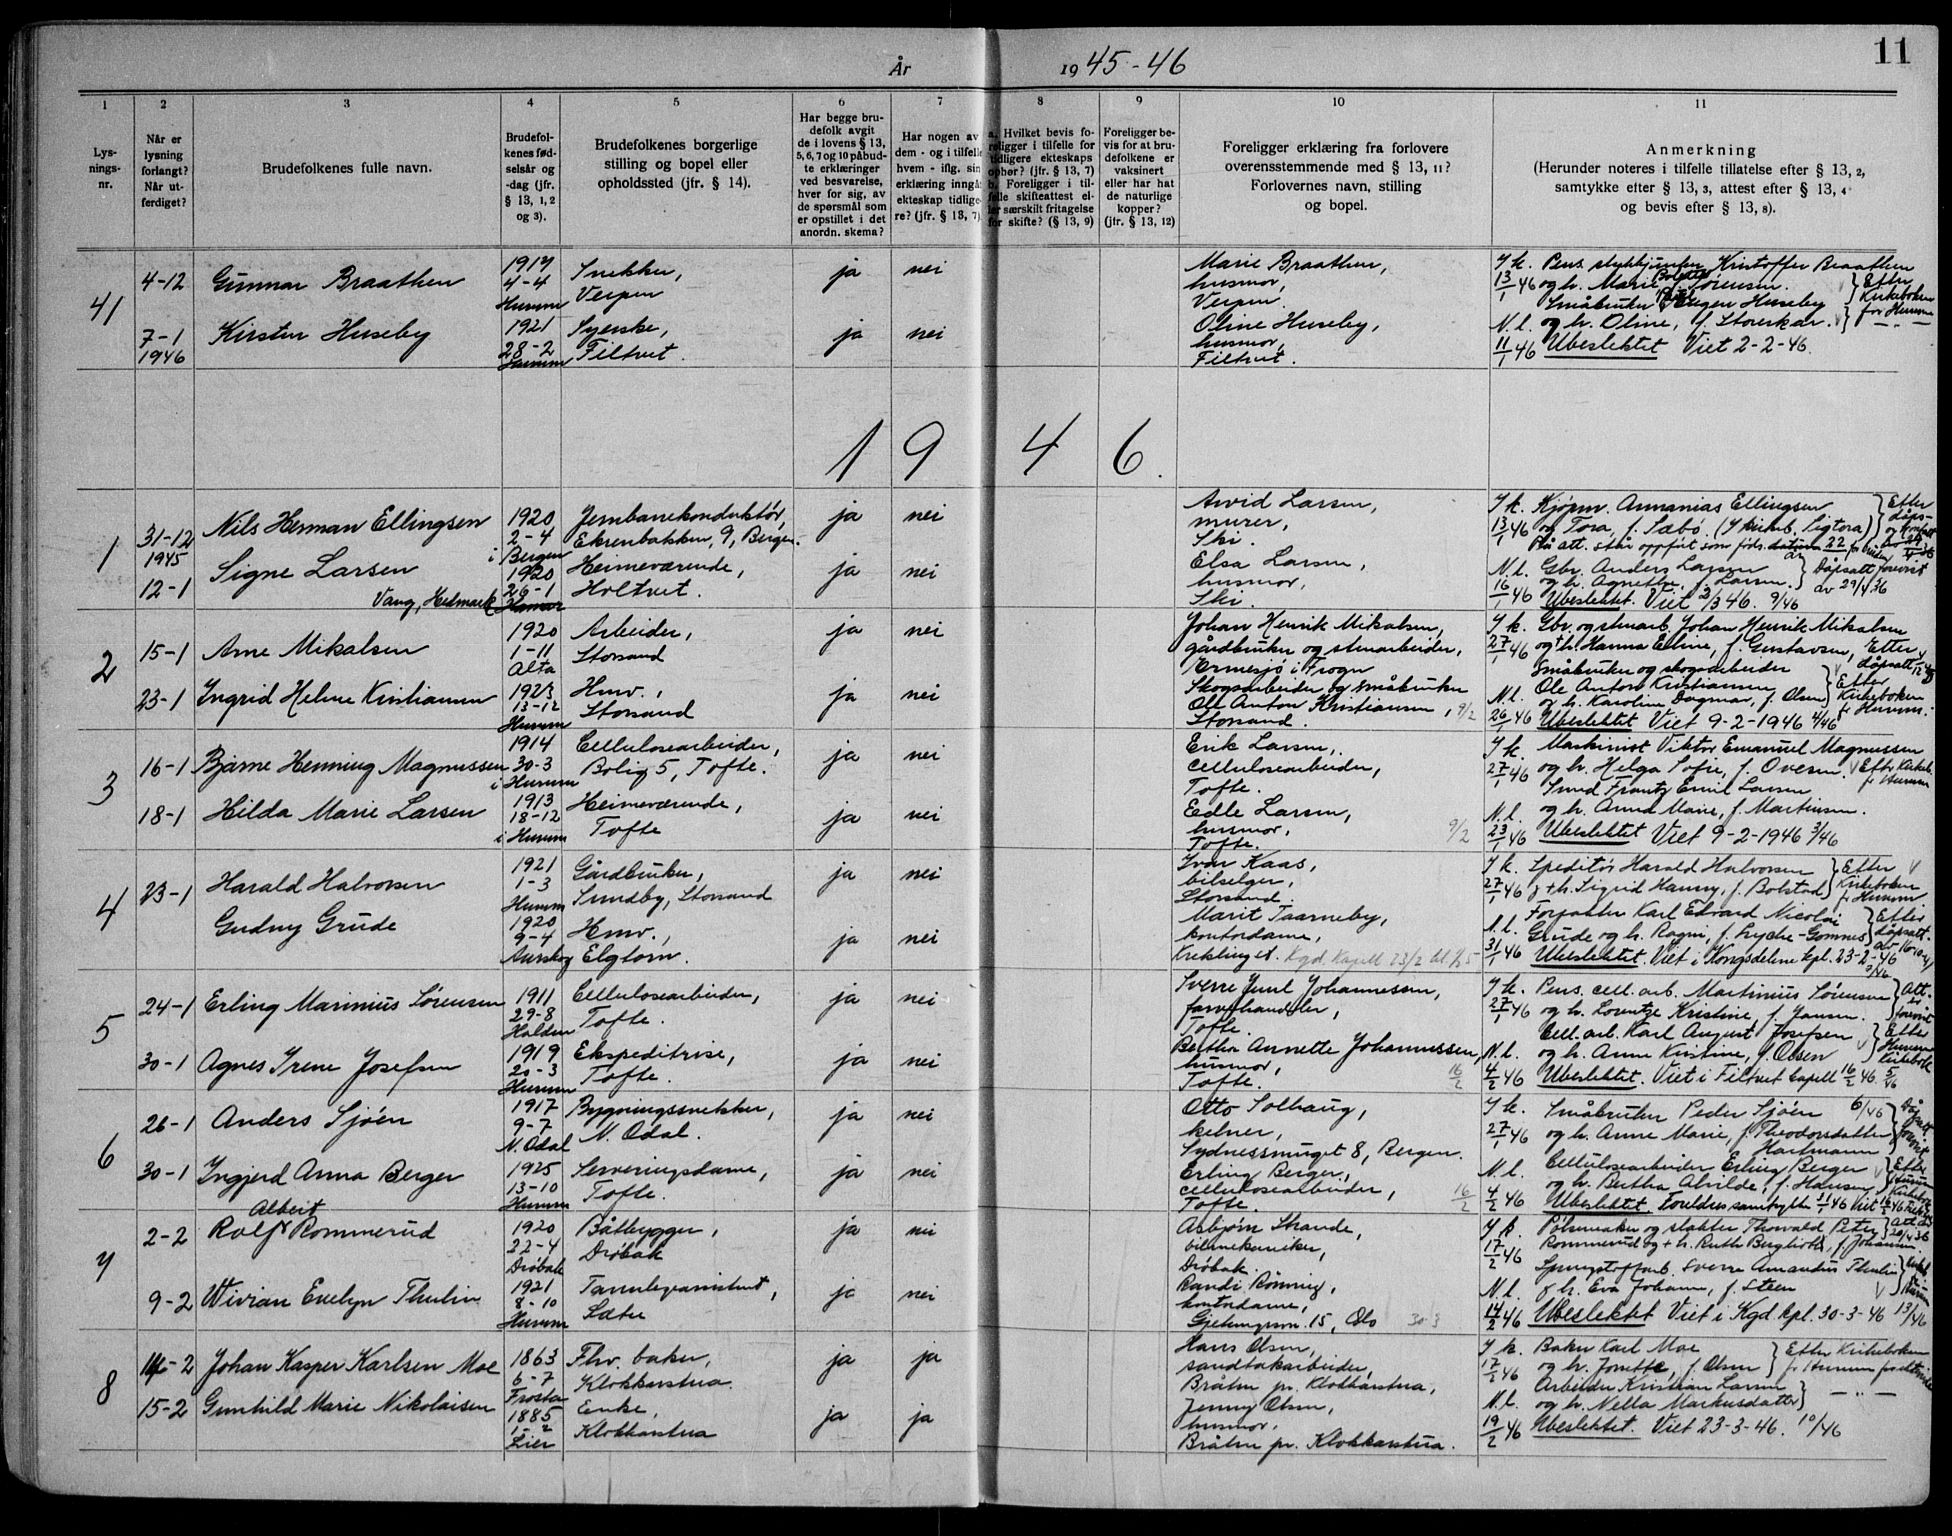 11
År 19 45-46
1 2 3 4 5 6 7 8 9 10 11
Lysningsnr.
Når er lysning forlangt? Når utferdiget?
Brudefolkenes fulle navn.
Brudefolkenes fødselsår og -dag (jfr. § 13, 1, 2 og 3).
Brudefolkenes borgerlige stilling og bopel eller opholdssted (jfr. § 14).
Har begge brudefolk avgit de i lovens § 13, 5, 6, 7 og 10 påbudte erklæringer ved besvarelse, hver for sig, av de spørsmål som er opstillet i det anordn. skema?
Har nogen av dem - og i tilfelle hvem - iflg. sin erklæring inngått ekteskap tidligere? (jfr. § 13, 7)
a. Hvilket bevis foreligger i tilfelle for tidligere ekteskaps ophør? (jfr. § 13, 7) b. Foreligger i tilfelle skifteattest eller særskilt fritagelse for skifte? (§ 13, 9)
Foreligger bevis for at brudefolkene er vaksinert eller har hat de naturlige kopper? (jfr. § 13, 12)
Foreligger erklæring fra forlovere overensstemmende med § 13, 11? Forlovernes navn, stilling og bopel.
Anmerkning
(Herunder noteres i tilfelle tillatelse efter § 13, 2, samtykke efter § 13, 3, attest efter § 13, 4 og bevis efter § 13, 8).
41
4-12 Gunnar Braathen
1917 4-4 Hurum
Snekker, Verpen
ja nei
Marie Braathen, husmor, Verpen.
Y k. 13/1 46 Pens. Kristoffer Braathen og h. Marie f. Sørensen.
Efter Kirkeboken for Hurum
7-1 1946 Kirsten Huseby
1921 28-2 Hurum
Syerske, Filtvet.
ja nei
Oline Huseby, husmor, Filtvet.
N. l. 11/1 46 Småbruker Huseby og h. Oline, f. Storerkar.
Ubeslektet Viet 2-2-46.
1 9 4 6.
1
31-12 1945 Nils Herman Ellingsen
1920 2-4 i Bergen
Jernbanekonduktør, Ekrenbakken, 9, Bergen.
ja nei
Arvid Larsen, murer, Ski.
Y k. 13/1 46 Kjøpm. Annanias Ellingsen og Tora, f. Sæbø.
12-1 Signe Larsen
Vang, Hedmark
1920 26-1 Hamar
Heimeværende, Holtvet.
ja nei
Elsa Larsen, husmor, Ski.
N. l. 16/1 46 Gbr. Anders Larsen og h. Agnethe, f. Larsen.
Dåpsatt. forevist av 29/4 36
Ubeslektet. Viet 2/3 46. 9/46
2
15-1 Arne Mikalsen
1920 1-11 Alta
Arbeider, Storsand
ja nei
Johan Henrik Mikalsen, gårdbruker og stenarbeider, Ermesjø i Frogn
Y k. 27/1 46 Gbr. og stenarb. Johan Henrik Mikalsen og h. Hanna Eline, f. Gustavsen, Efter dåpsatt.
23-1 Ingrid Helene Kristiansen
1923 13-12 Hurum
Hmv., Storsand
ja nei
Skogsarbeider og småbruker Ole Anton Kristiansen, Storsand. 9/2
N. l. 26/1 46 Småbruker og skogsarbeider Ole Anton Kristiansen og h. Karoline Dagmar, f. Olsen
Efter Kirkeboken f. Hurum.
Ubeslektet Viet 9-2-1946 4/46
3
16-1 Bjarne Henning Magnussen
1914 30-3 i Hurum
Cellulosearbeider, Bolig 5, Tofte.
ja nei
Erik Larsen, cellulosearbeider, Tofte.
Y k. 27/1 46 Maskinist Viktor Emanuel Magnussen og h. Helga Sofie, f. Ovesen. Efter Kirkeb. f. Hurum
18-1 Hilda Marie Larsen
1913 18-12 i Hurum
Heimeværende, Tofte
ja nei
Edle Larsen, husmor, Tofte. 9/2
N. l. 23/1 46 Smed Frantz Emil Larsen og h. Anna Marie, f. Martinsen.
Ubeslektet Viet 9-2-1946 3/46
4
23-1 Harald Halvorsen
1921 1-3 Hurum
Gårdbruker, Sundby, Storsand
ja nei
Ivar Kaas, bilselger, Storsand.
Y k. 27/1 46 Speditør Harald Halvorsen og h. Sigrid Hanny, f. Bolstad
Efter Kirkeboken f. Hurum
Gudny Grude
1920 9-4 Aurskog
Hmv., Elgtorn.
ja nei
Marit Taarneby, kontordame, Kreklinget. Kgd. Kapell 23/2
N. l. 31/1 46 Forfatter Karl Edvard Nicolai Grude og h. Ragni, f. Lyche-Gomnes
Efter dåpsatt.
Ubeslektet. Viet i Kongsdelene kpl. 23-2-46
5
24-1 Erling Marinius Sørensen
1911 29-8 Halden
Cellulosearbeider, Tofte.
ja nei
Sverre Juul Johannessen, farvehandler, Tofte.
Y k. 27/1 46 Pens. cell. arb. Martinius Sørensen og h. Lorentze Kristine, f. Jansen.
Att. er forevist
30-1 Agnes Irene Josefsen
1919 20-3 Hurum
Ekspeditrise, Tofte.
ja nei
Berthe Annette Johannessen, husmor, Tofte. 16/2
N. l. 4/2 46 Cell. arb. Karl August Josefsen og h. Anne Kristine, f. Olsen
Efter Hurum Kirkebok
Ubeslektet. Viet i Filtvet Capell 16/2 46. 5/46
6
26-1 Anders Sjøen
1917 9-7 N. Odal
Bygningssnekker, N. Odal.
ja nei
Otto Solhaug, kelner, Sydnessmuget 8, Bergen.
Y k. 27/1 46 Småbruker Peder Sjøen 6/46 og h. Anne Marie, f. Theodorsdatter Hartmann
Dåpsatt. forevist
30-1 Ingjerd Anna Berger
1925 13-10 Hurum
Serveringsdame, Tofte.
ja nei
Erling Berger, cellulosearbeider, Tofte. 16/2
N. l. 4/2 46 Cellulosearbeider Erling Berger og h. Bertha Alvilde, f. Hansen
Efter Hurum Kirkebok
Ubeslektet. Foreldres samtykke 31/1 46 Viet 16/2 46
7
2-2 Rolf Albert Rommerud
1920 22-4 Drøbak
Båtbygger, Drøbak
ja nei
Asbjørn Strande, bilmekaniker, Drøbak.
Y k. 17/2 46 Pølsemaker og slakter Thorvald Peter Rommerud og h. Ruth Bergliot, f. Johansen
9-2 Wivian Evelyn Thulin
1921 8-10 Hurum
Tannlegeassistent, Sætre
ja nei
Randi Rønning, kontordame, Gjetemyrsvn. 15, Oslo 30-3
N. l. 14/2 46 Sprengstoffarb. Sverre Amandus Thulin og h. Eva Johanne, f. Steen
Ubeslektet Viet i Kgd. kpl. 30-3-46 13/46
8
14-2 Johan Kasper Karlsen Moe
1863 6-7 Frosta
Fhv. baker, Klokkarstua.
ja ja
Hans Olsen, sandtakarbeider, Bråten pr. Klokkarstua,
Y k. 17/2 46 Baker Karl Moe og h. Jonette, f. Olsen
Efter Kirkeboken f. Hurum
15-2 Gunhild Marie Nikolaisen
1885 1-2 Lier
Enke, Klokkarstua
ja ja
Jenny Olsen, husmor, Bråten pr. Klokkarstua.
N. l. 19/2 46 Arbeider Kristian Larsen og h. Nella Markusdatter
Ubeslektet. Viet 23-3-46. 10/46